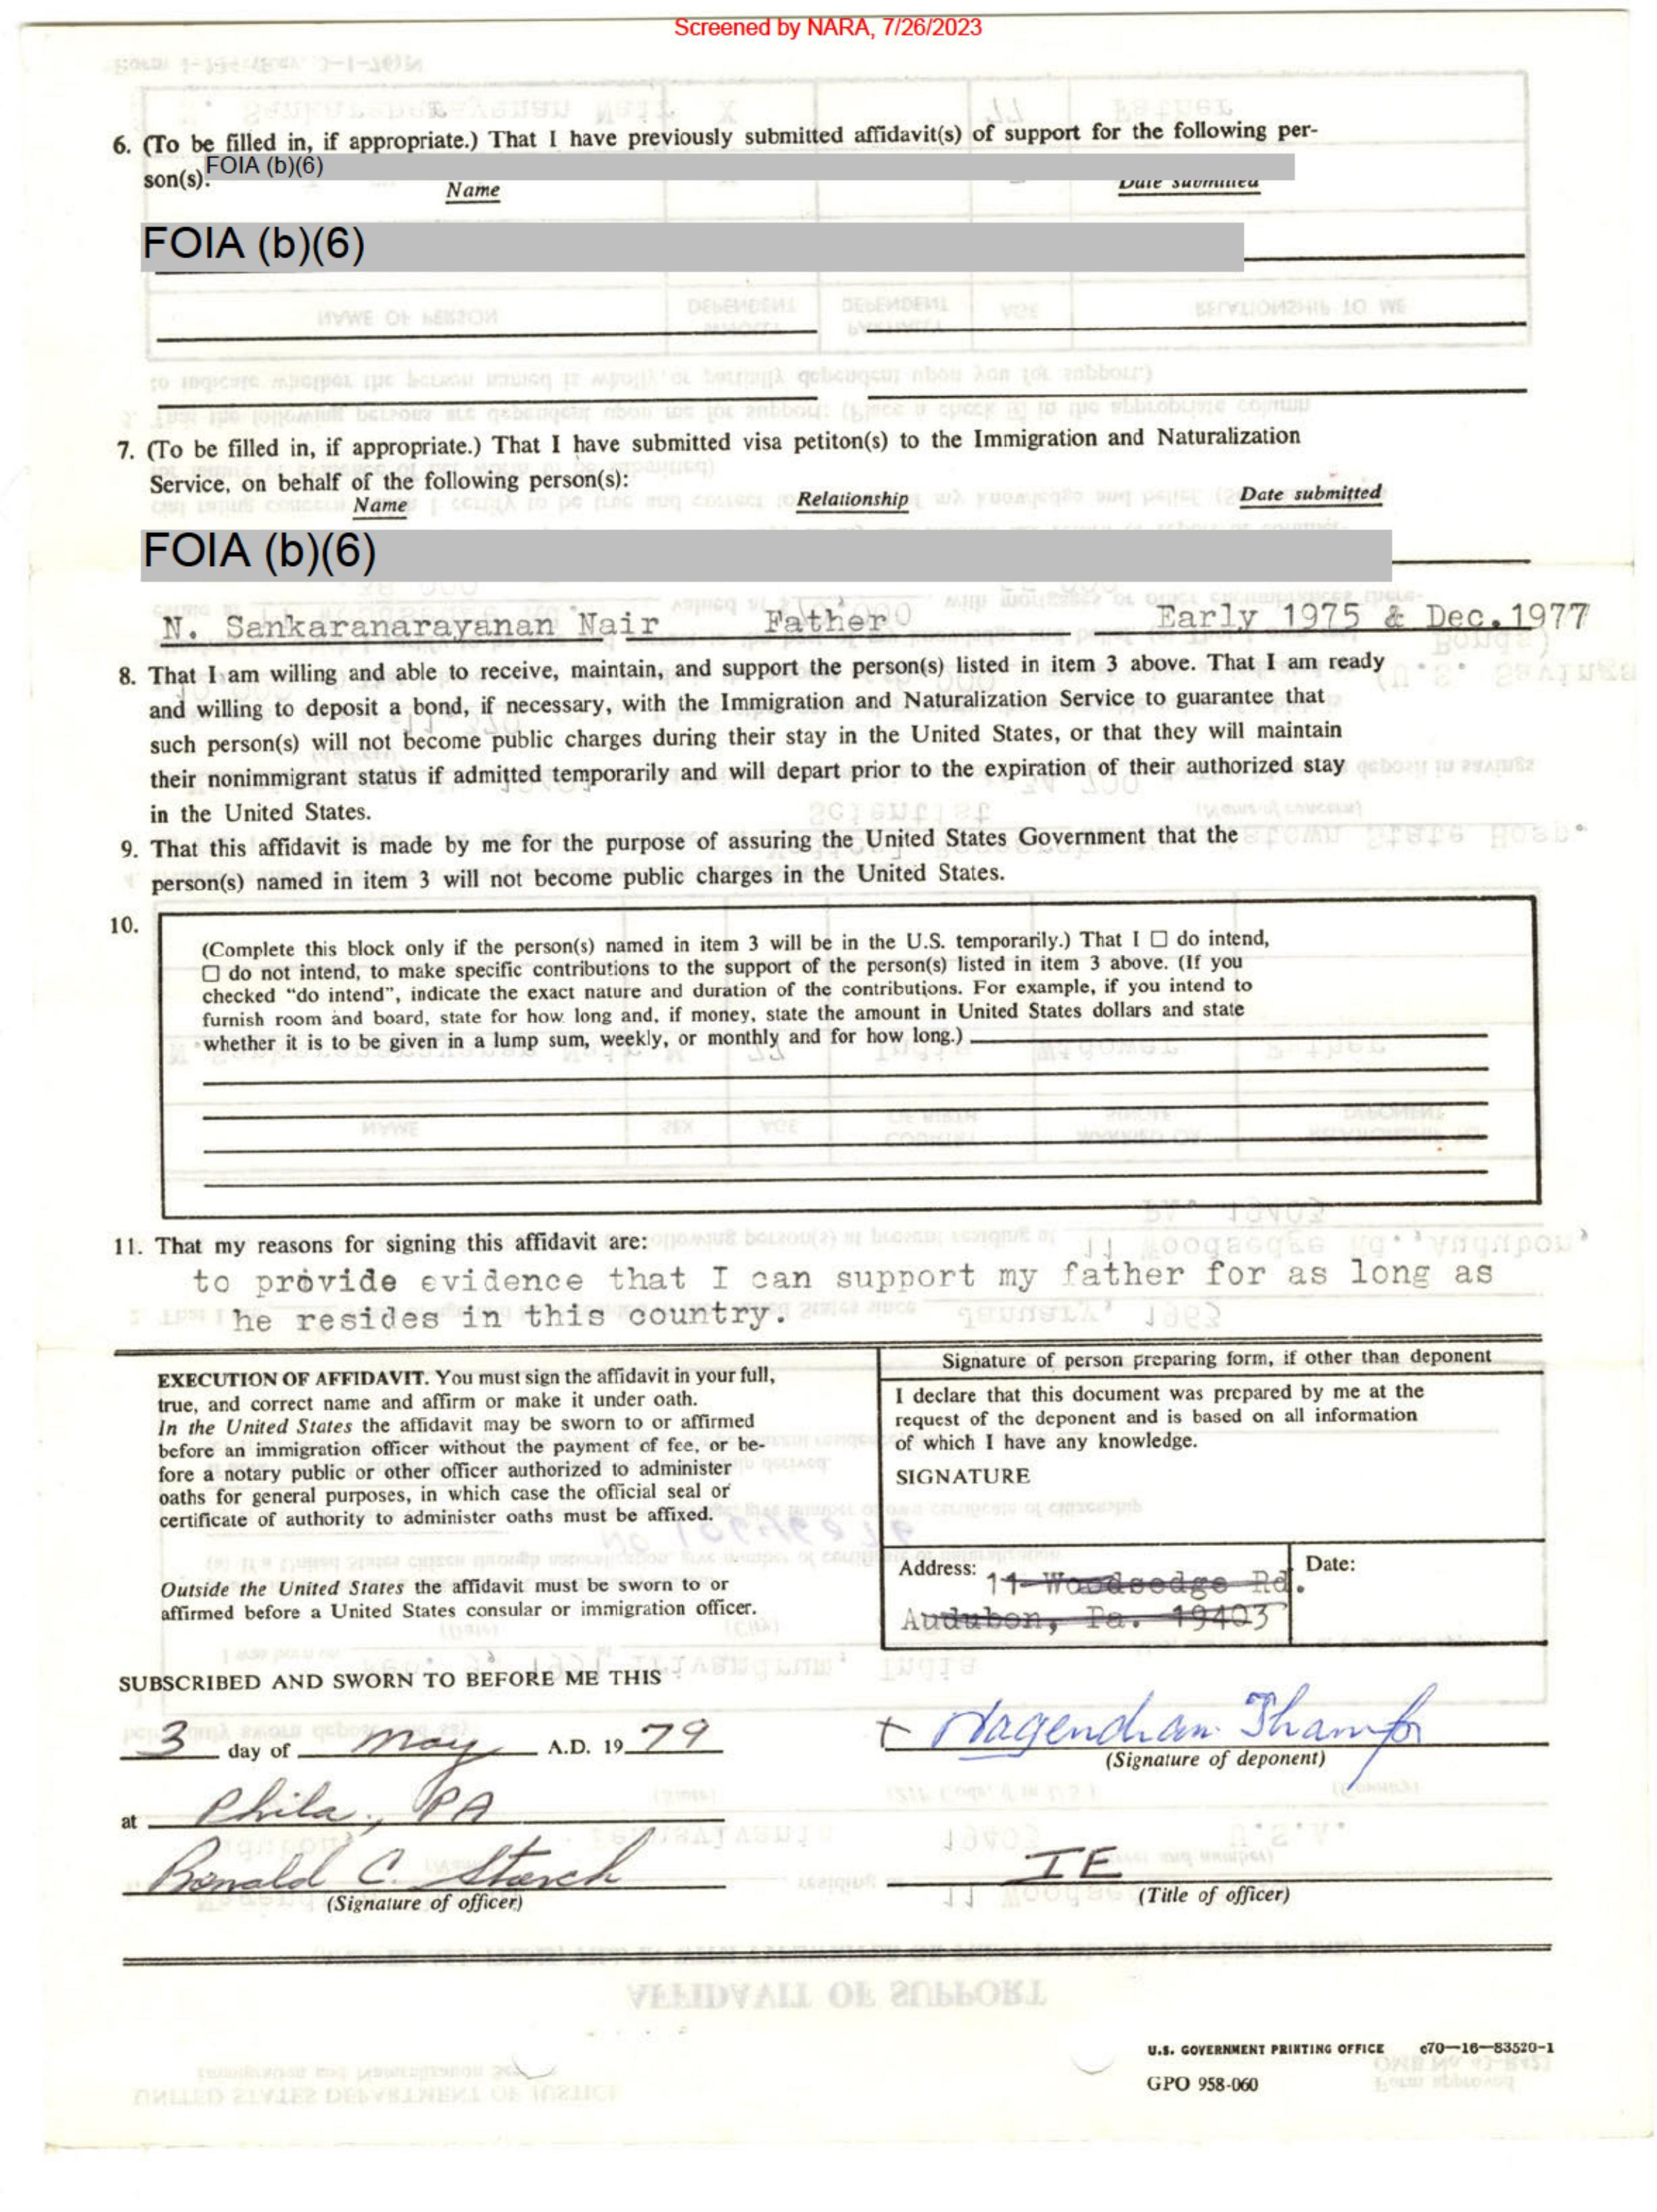 Screened by NARA, 7/26/2023
6. (To be filled in, if appropriate.) That I have previously submitted affidavit(s) of support for the following per-
son(s): FOIA (b)(6)
Name Date submitted
FOIA (b)(6)
7. (To be filled in, if appropriate.) That I have submitted visa petiton(s) to the Immigration and Naturalization
Service, on behalf of the following person(s):
Name Relationship Date submitted
FOIA (b)(6)
N. Sankaranarayanan Nair Father Early 1975 & Dec.1977
8. That I am willing and able to receive, maintain, and support the person(s) listed in item 3 above. That I am ready
and willing to deposit a bond, if necessary, with the Immigration and Naturalization Service to guarantee that
such person(s) will not become public charges during their stay in the United States, or that they will maintain
their nonimmigrant status if admitted temporarily and will depart prior to the expiration of their authorized stay
in the United States.
9. That this affidavit is made by me for the purpose of assuring the United States Government that the
person(s) named in item 3 will not become public charges in the United States.
10.
(Complete this block only if the person(s) named in item 3 will be in the U.S. temporarily.) That I ☐ do intend,
☐ do not intend, to make specific contributions to the support of the person(s) listed in item 3 above. (If you
checked "do intend", indicate the exact nature and duration of the contributions. For example, if you intend to
furnish room and board, state for how long and, if money, state the amount in United States dollars and state
whether it is to be given in a lump sum, weekly, or monthly and for how long.)
11. That my reasons for signing this affidavit are:
to provide evidence that I can support my father for as long as
he resides in this country.
EXECUTION OF AFFIDAVIT. You must sign the affidavit in your full,
true, and correct name and affirm or make it under oath.
In the United States the affidavit may be sworn to or affirmed
before an immigration officer without the payment of fee, or be-
fore a notary public or other officer authorized to administer
oaths for general purposes, in which case the official seal or
certificate of authority to administer oaths must be affixed.
Outside the United States the affidavit must be sworn to or
affirmed before a United States consular or immigration officer.
Signature of person preparing form, if other than deponent
I declare that this document was prepared by me at the
request of the deponent and is based on all information
of which I have any knowledge.
SIGNATURE
Address: 11 Woodsedge Rd.
Audubon, Pa. 19403
Date:
SUBSCRIBED AND SWORN TO BEFORE ME THIS
3 day of May A.D. 19 79
Nagendran Thampi
(Signature of deponent)
at Phila., PA
Ronald C. Storch
(Signature of officer)
IE
(Title of officer)
U.S. GOVERNMENT PRINTING OFFICE c70—16—83520-1
GPO 958-060